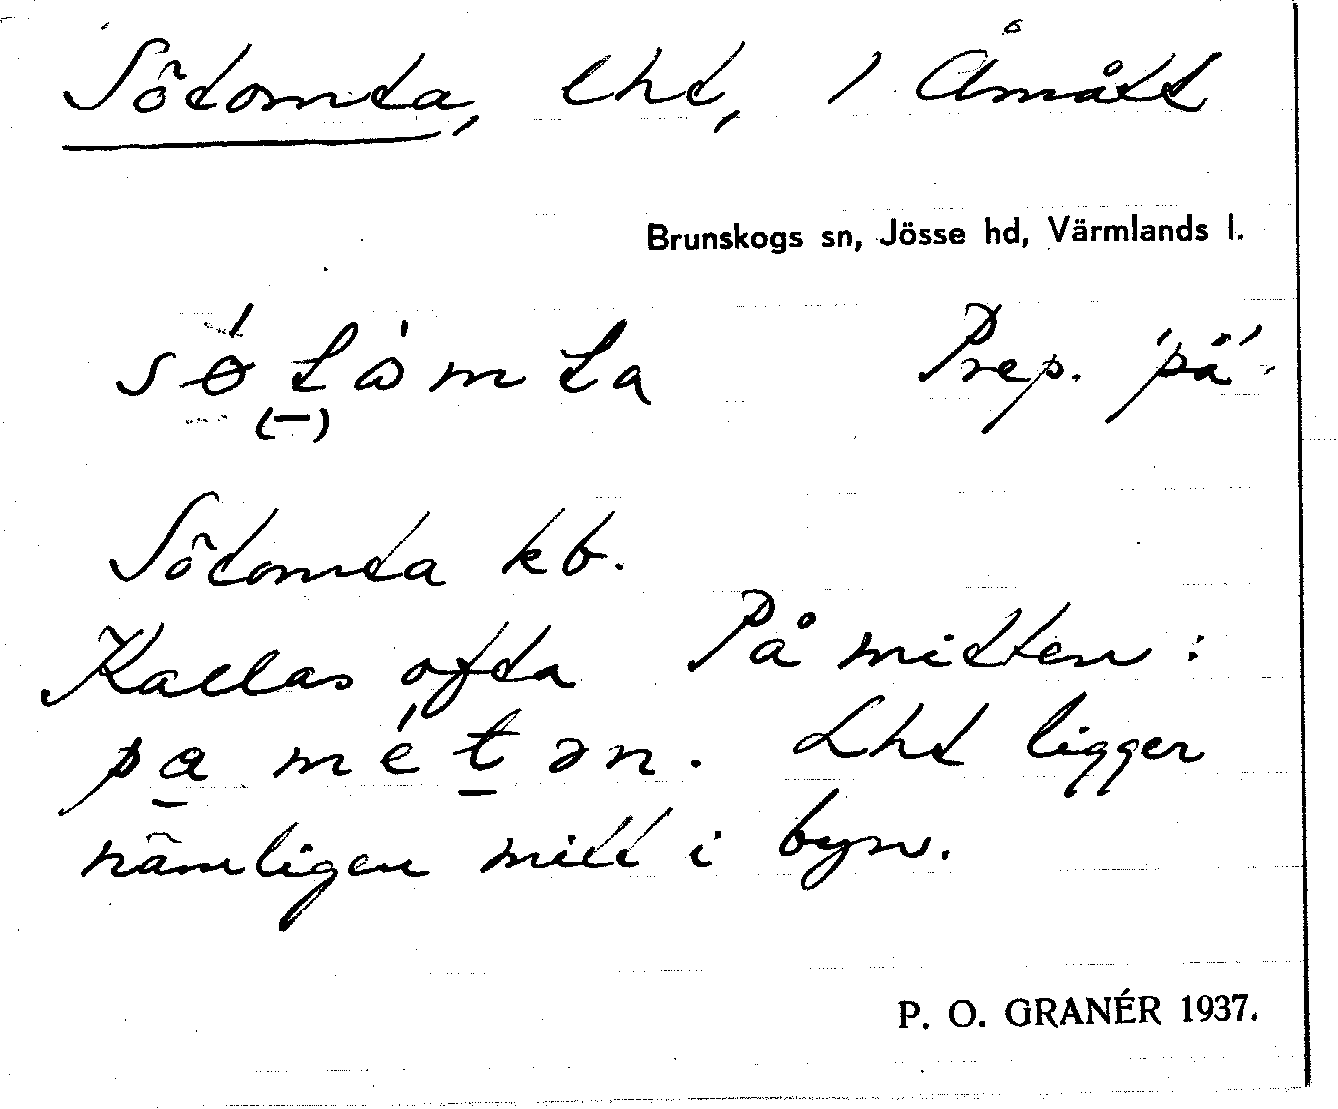 Sötomta, lht, 1 Åmått
Brunskogs sn, Jösse hd, Värmlands l.
sǿtòmta Prep. 'på'
(–)
Sötomta kb.
Kallas ofta På mitten:
pa métən. Lht ligger
nämligen mitt i byn.
P. O. GRANÉR 1937.